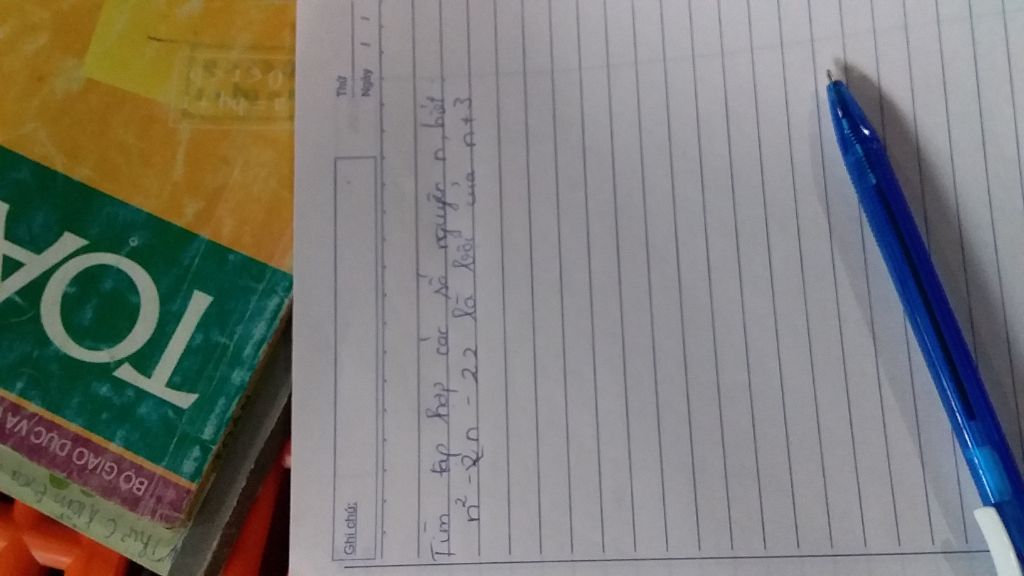 Thứ
Ngày / /
Ghi chú:
Tìm tập hợp các số nguyên n biết
n² - 2n - 22 là bội của n+3
TOÁ
BỘ GIÁO DỤC VÀ